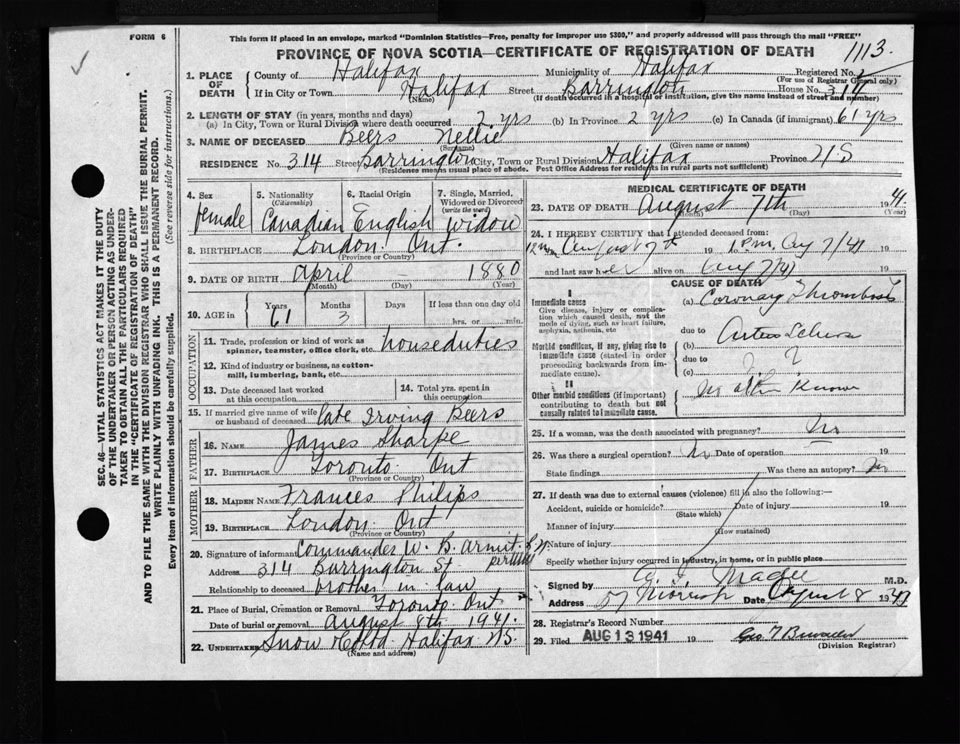 FORM 6
This form if placed in an envelope, marked "Dominion Statistics—Free, penalty for improper use $300," and properly addressed will pass through the mail "FREE"
PROVINCE OF NOVA SCOTIA—CERTIFICATE OF REGISTRATION OF DEATH
1113.
1. PLACE OF DEATH
County of Halifax Municipality of Halifax Registered No.
(For use of Registrar General only)
If in City or Town Halifax Street Barrington House No. 314
(Name) (If death occurred in a hospital or institution, give the name instead of street and number)
2. LENGTH OF STAY (in years, months and days)
(a) In City, Town or Rural Division where death occurred 2 yrs (b) In Province 2 yrs (c) In Canada (if immigrant) 61 yrs
3. NAME OF DECEASED Beers Nellie
(Surname) (Given name or names)
RESIDENCE No. 314 Street Barrington City, Town or Rural Division Halifax Province N S
(Residence means usual place of abode. Post Office Address for residents in rural parts not sufficient)
4. Sex female
5. Nationality (Citizenship) Canadian
6. Racial Origin English
7. Single, Married, Widowed or Divorced (write the word) widow
8. BIRTHPLACE London. Ont.
(Province or Country)
9. DATE OF BIRTH April 1880
(Month) (Day) (Year)
10. AGE in Years 61 Months 3 Days If less than one day old
hrs. or min.
OCCUPATION
11. Trade, profession or kind of work as spinner, teamster, office clerk, etc. houseduties
12. Kind of industry or business, as cotton-mill, lumbering, bank, etc.
13. Date deceased last worked at this occupation
14. Total yrs. spent in this occupation
15. If married give name of wife or husband of deceased late Irving Beers
FATHER
16. NAME James Sharpe
17. BIRTHPLACE Toronto. Ont
(Province or Country)
MOTHER
18. MAIDEN NAME Frances Philips
19. BIRTHPLACE London. Ont
(Province or Country)
20. Signature of informant Commander W. B. Armit. R N
Address 314 Barrington St. per
Relationship to deceased brother in law
21. Place of Burial, Cremation or Removal Toronto. Ont
Date of burial or removal August 8th 1941.
22. UNDERTAKER Snow Halifax N S.
(Name and address)
MEDICAL CERTIFICATE OF DEATH
23. DATE OF DEATH August 7th 1941
(Month) (Day) (Year)
24. I HEREBY CERTIFY that I attended deceased from:
August 7th 19 1 P.M. Aug 7/41 19
and last saw her alive on Aug 7/41 19
CAUSE OF DEATH
I
Immediate cause
Give disease, injury or complication which caused death, not the mode of dying, such as heart failure, asphyxia, asthenia, etc
(a) Coronary Thrombosis
due to
Morbid conditions, if any, giving rise to immediate cause (stated in order proceeding backwards from immediate cause).
(b) Arterio Scleros
due to
(c) ?
II
Other morbid conditions (if important) contributing to death but not causally related to immediate cause.
No other Known
25. If a woman, was the death associated with pregnancy? No
26. Was there a surgical operation? No Date of operation 19
State findings Was there an autopsy? No
27. If death was due to external causes (violence) fill in also the following:—
Accident, suicide or homicide? Date of injury 19
(State which)
Manner of injury
(How sustained)
Nature of injury
Specify whether injury occurred in industry, in home, or in public place
Signed by Magee M.D.
Address 57 Date August 8 1941
28. Registrar's Record Number
29. Filed AUG 13 1941 19 Geo
(Division Registrar)
SEC. 46—VITAL STATISTICS ACT MAKES IT THE DUTY
OF THE UNDERTAKER OR PERSON ACTING AS UNDER-
TAKER TO OBTAIN ALL THE PARTICULARS REQUIRED
IN THE "CERTIFICATE OF REGISTRATION OF DEATH"
AND TO FILE THE SAME WITH THE DIVISION REGISTRAR WHO SHALL ISSUE THE BURIAL PERMIT.
WRITE PLAINLY WITH UNFADING INK. THIS IS A PERMANENT RECORD.
Every item of information should be carefully supplied. (See reverse side for instructions.)